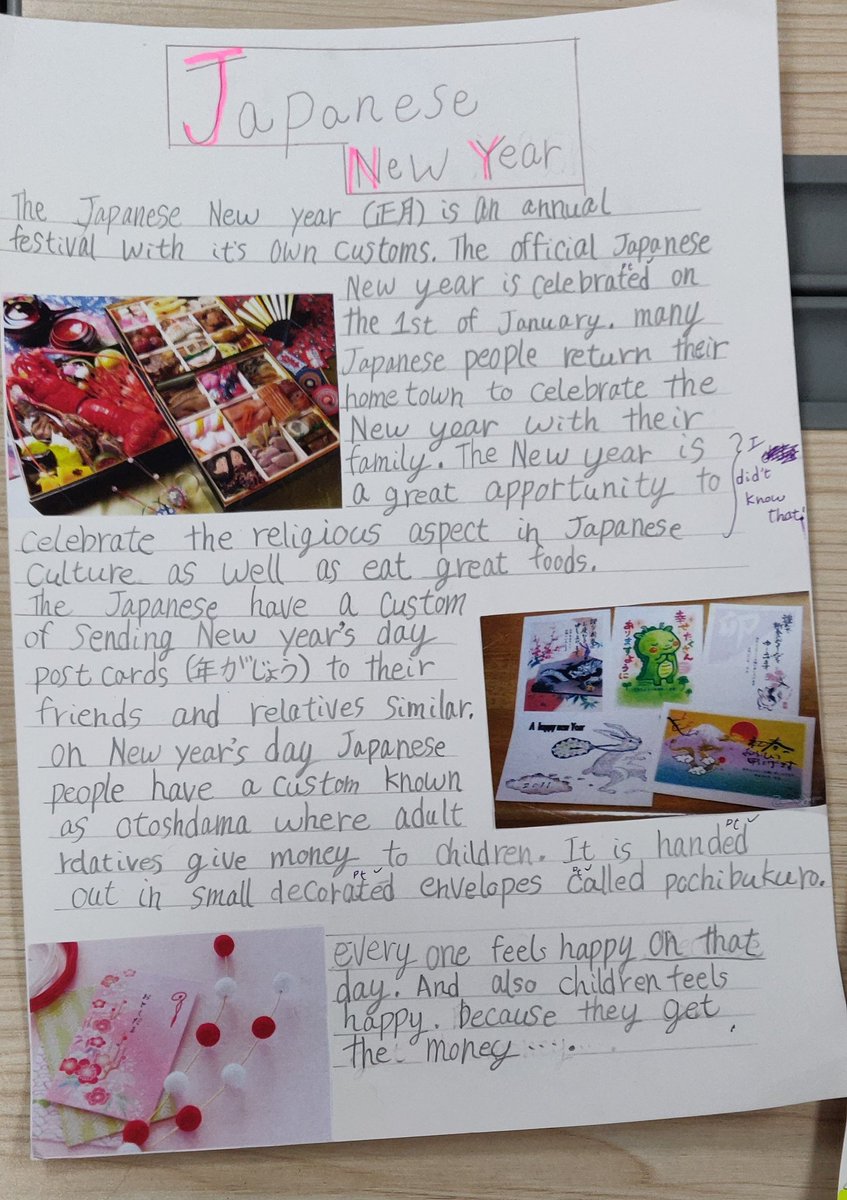 Japanese
New Year
The Japanese New year (正月) is an annual
festival with it's own customs. The official Japanese
New year is celebrated on
pt ✓
the 1st of January. many
Japanese people return their
home town to celebrate the
New year with their
family. The New year is
a great apportunity to
I
did't
know
that!
celebrate the religious aspect in Japanese
culture as well as eat great foods.
The Japanese have a custom
of sending New year's day
post cards (年がじょう) to their
friends and relatives similar.
on New year's day Japanese
people have a custom known
as otoshdama where adult
relatives give money to children. It is handed
pt ✓
out in small decorated envelopes called pochibukuro.
pt ✓
pt ✓
every one feels happy on that
day. And also children feels
happy. because they get
the money.....
幸せたくさん
ありますように
卯
A happy new Year
2011